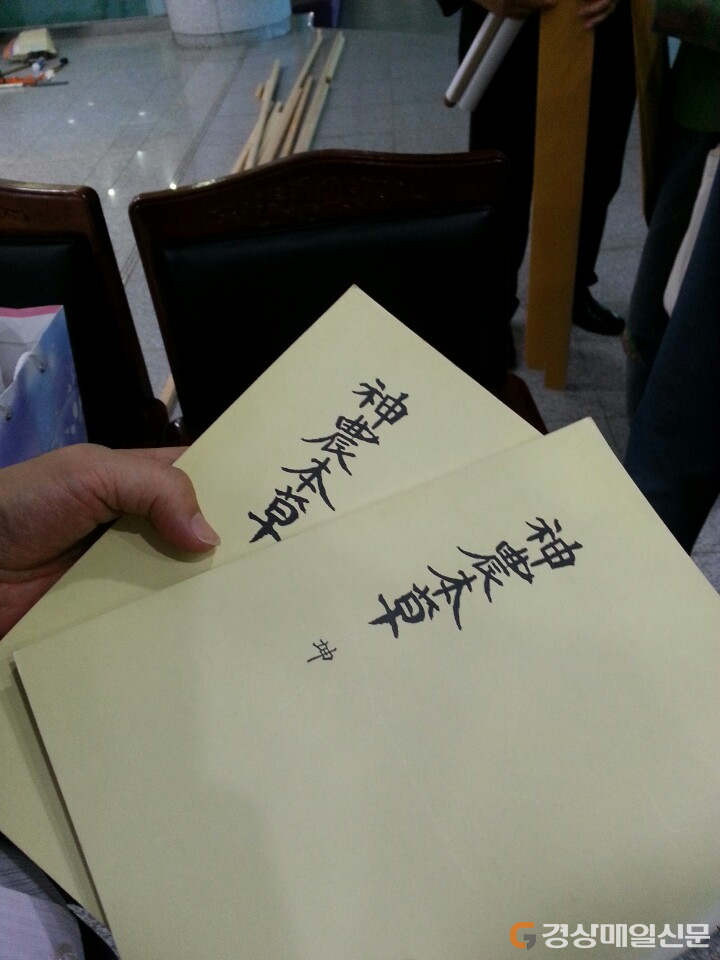 神農本草
神農本草
坤
경상매일신문